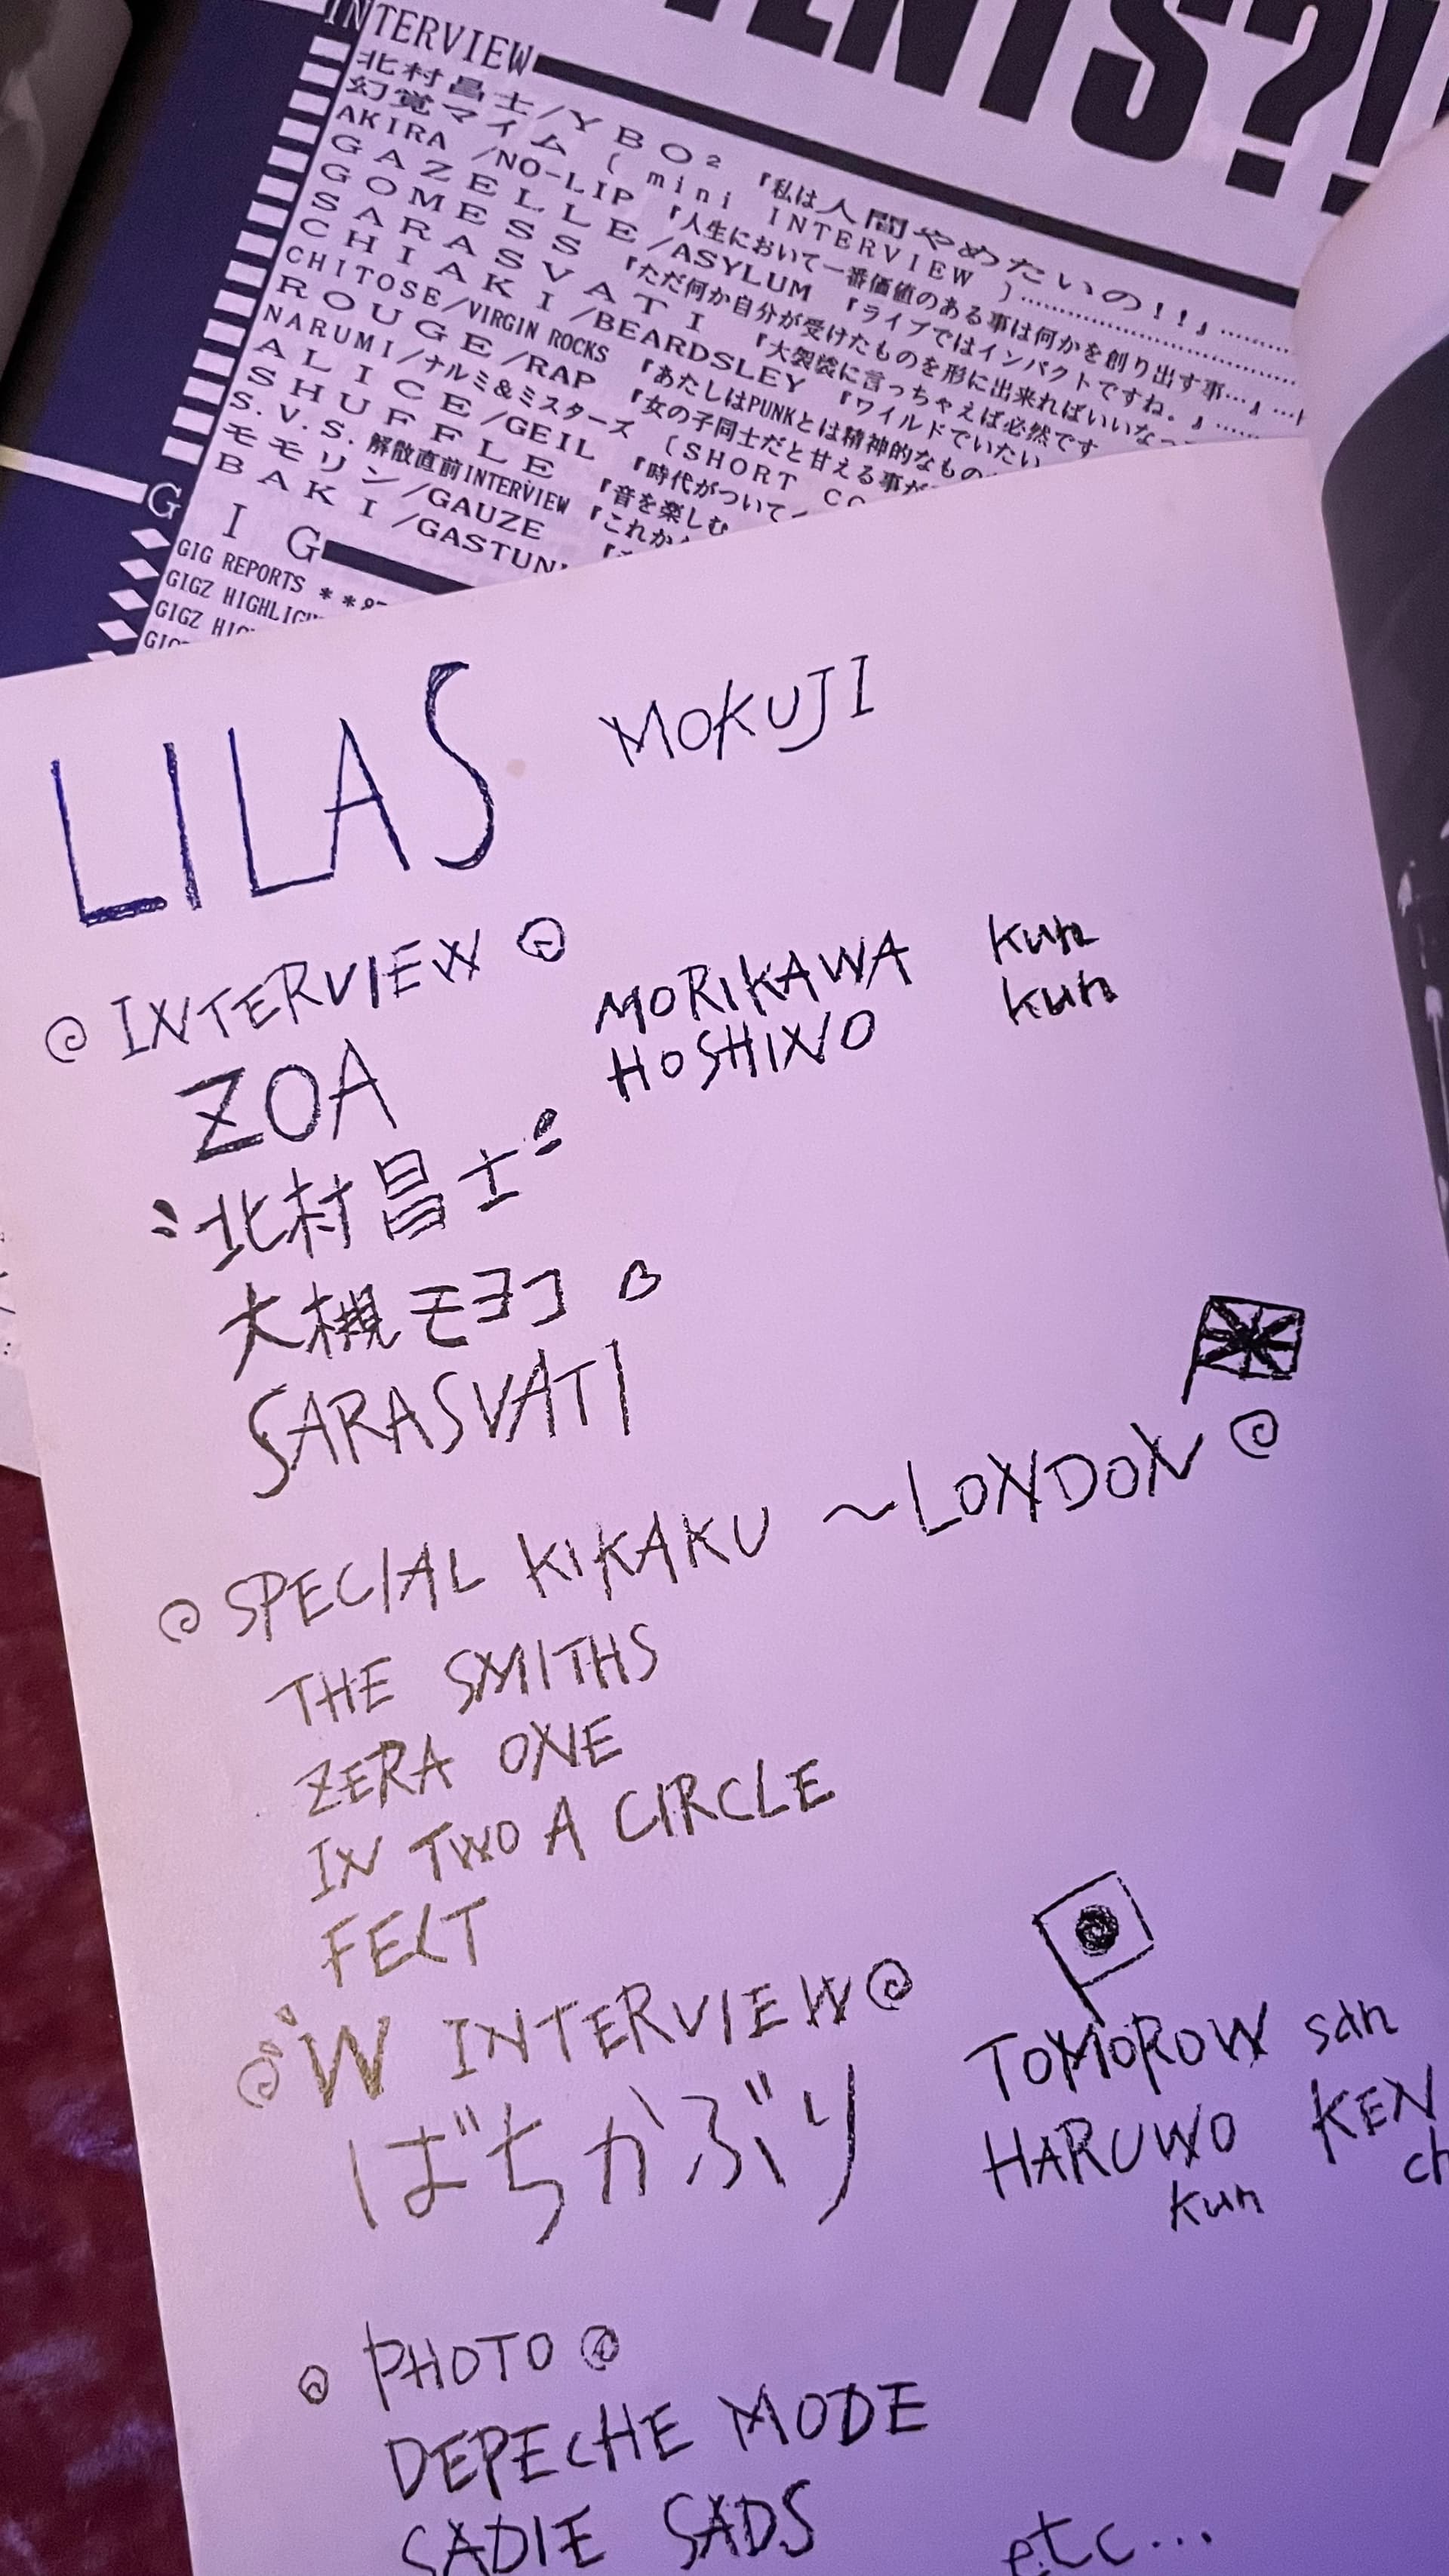 TENTS?!
INTERVIEW
北村昌士/YBO²『私は人間やめたいの!!』……
幻覚マイム(mini INTERVIEW)……
AKIRA/NO-LIP『人生において一番価値のある事は何かを創り出す事…』…
GAZELLE/ASYLUM『ライブではインパクトですね。』……
GOMESS『ただ何か自分が受けたものを形に出来ればいいな
SARASVATI『大袈裟に言っちゃえば必然です
CHIAKI/BEARDSLEY『ワイルドでいたい
CHITOSE/VIRGIN ROCKS『あたしはPUNKとは精神的なもの
ROUGE/RAP『女の子同士だと甘える事が
NARUMI/ナルミ&ミスターズ(SHORT CO
ALICE/GEIL『時代がついて
SHUFFLE『音を楽しむ
S.V.S.解散直前INTERVIEW『これか
モモリン/GAUZE
BAKI/GASTUN
GIG
GIG REPORTS **
GIGZ HIGHLIG
GIGZ HIG
LILAS MOKUJI
INTERVIEW
ZOA MORIKAWA kun
HOSHINO kun
北村昌士
大槻モヨコ
SARASVATI
SPECIAL KIKAKU ~LONDON
THE SMITHS
ZERA ONE
IN TWO A CIRCLE
FELT
W INTERVIEW
ばちかぶり TOMOROW san
HARUWO kun KEN ch
PHOTO
DEPECHE MODE
SADIE SADS etc...